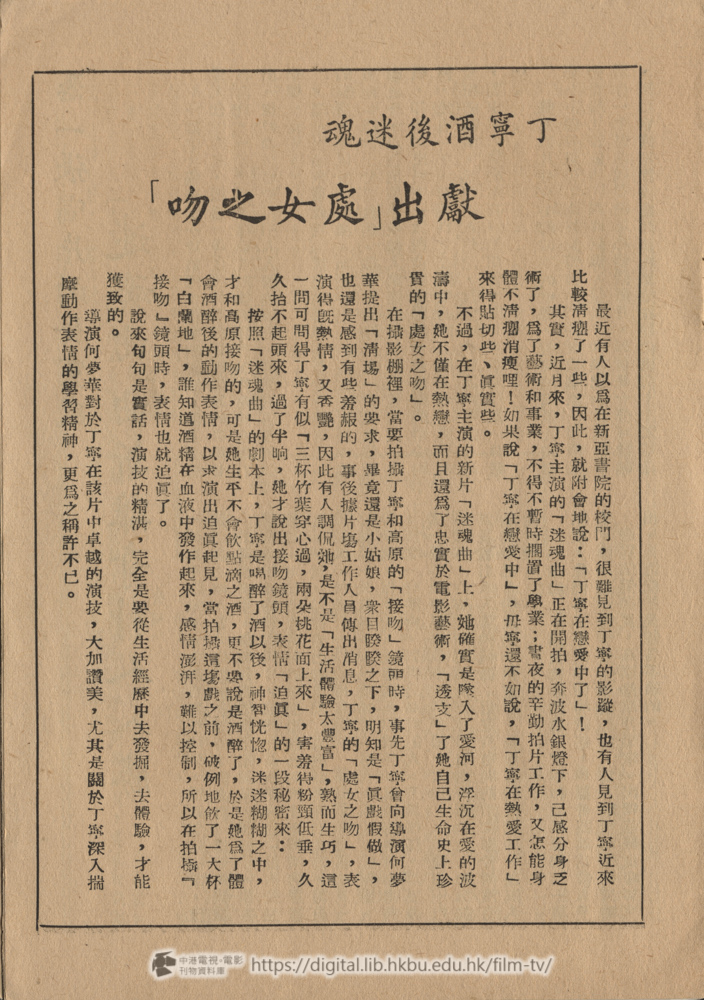 丁寧酒後迷魂
獻出「處女之吻」
最近有人以爲在新亞書院的校門,很難見到丁寧的影蹤,也有人見到丁寧近來
比較淸癯了一些,因此,就附會地說:「丁寧在戀愛中了」!
其實,近月來,丁寧主演的「迷魂曲」正在開拍,奔波水銀燈下,已感分身乏
術了,爲了藝術和事業,不得不暫時擱置了學業;晝夜的辛勤拍片工作,又怎能身
體不淸癯消瘦哩!如果說「丁寧在戀愛中」,毋寧還不如說,「丁寧在熱愛工作」
來得貼切些、眞實些。
不過,在丁寧主演的新片「迷魂曲」上,她確實是墜入了愛河,浮沉在愛的波
濤中,她不僅在熱戀,而且還爲了忠實於電影藝術,「透支」了她自己生命史上珍
貴的「處女之吻」。
在攝影棚裡,當要拍攝丁寧和高原的「接吻」鏡頭時,事先丁寧會向導演何夢
華提出「淸塲」的要求,畢竟還是小姑娘,衆目睽睽之下,明知是「眞戲假做」,
也還是感到有些羞赧的,事後據片塲工作人員傳出消息,丁寧的「處女之吻」,表
演得旣熱情,又香艷,因此有人調侃她,是不是「生活體驗太豐富」,熟而生巧,這
一問可問得丁寧有似「三杯竹葉穿心過,兩朵桃花面上來」,害羞得粉頸低垂,久
久抬不起頭來,過了半晌,她才說出接吻鏡頭,表情「迫眞」的一段秘密來:
按照「迷魂曲」的劇本上,丁寧是喝醉了酒以後,神智恍惚,迷迷糊糊之中,
才和高原接吻的,可是她生平不會飮點滴之酒,更不要說是酒醉了,於是她爲了體
會酒醉後的動作表情,以求演出迫眞起見,當拍攝這塲戲之前,破例地飮了一大杯
「白蘭地」,誰知道酒精在血液中發作起來,感情澎湃,難以控制,所以在拍攝『
接吻』鏡頭時,表情也就迫眞了。
說來句句是實話,演技的精湛,完全是要從生活經歷中去發掘,去體驗,才能
獲致的。
導演何夢華對於丁寧在該片中卓越的演技,大加讚美,尤其是關於丁寧深入揣
摩動作表情的學習精神,更爲之稱許不已。
中港電視・電影
刊物資料庫
https://digital.lib.hkbu.edu.hk/film-tv/